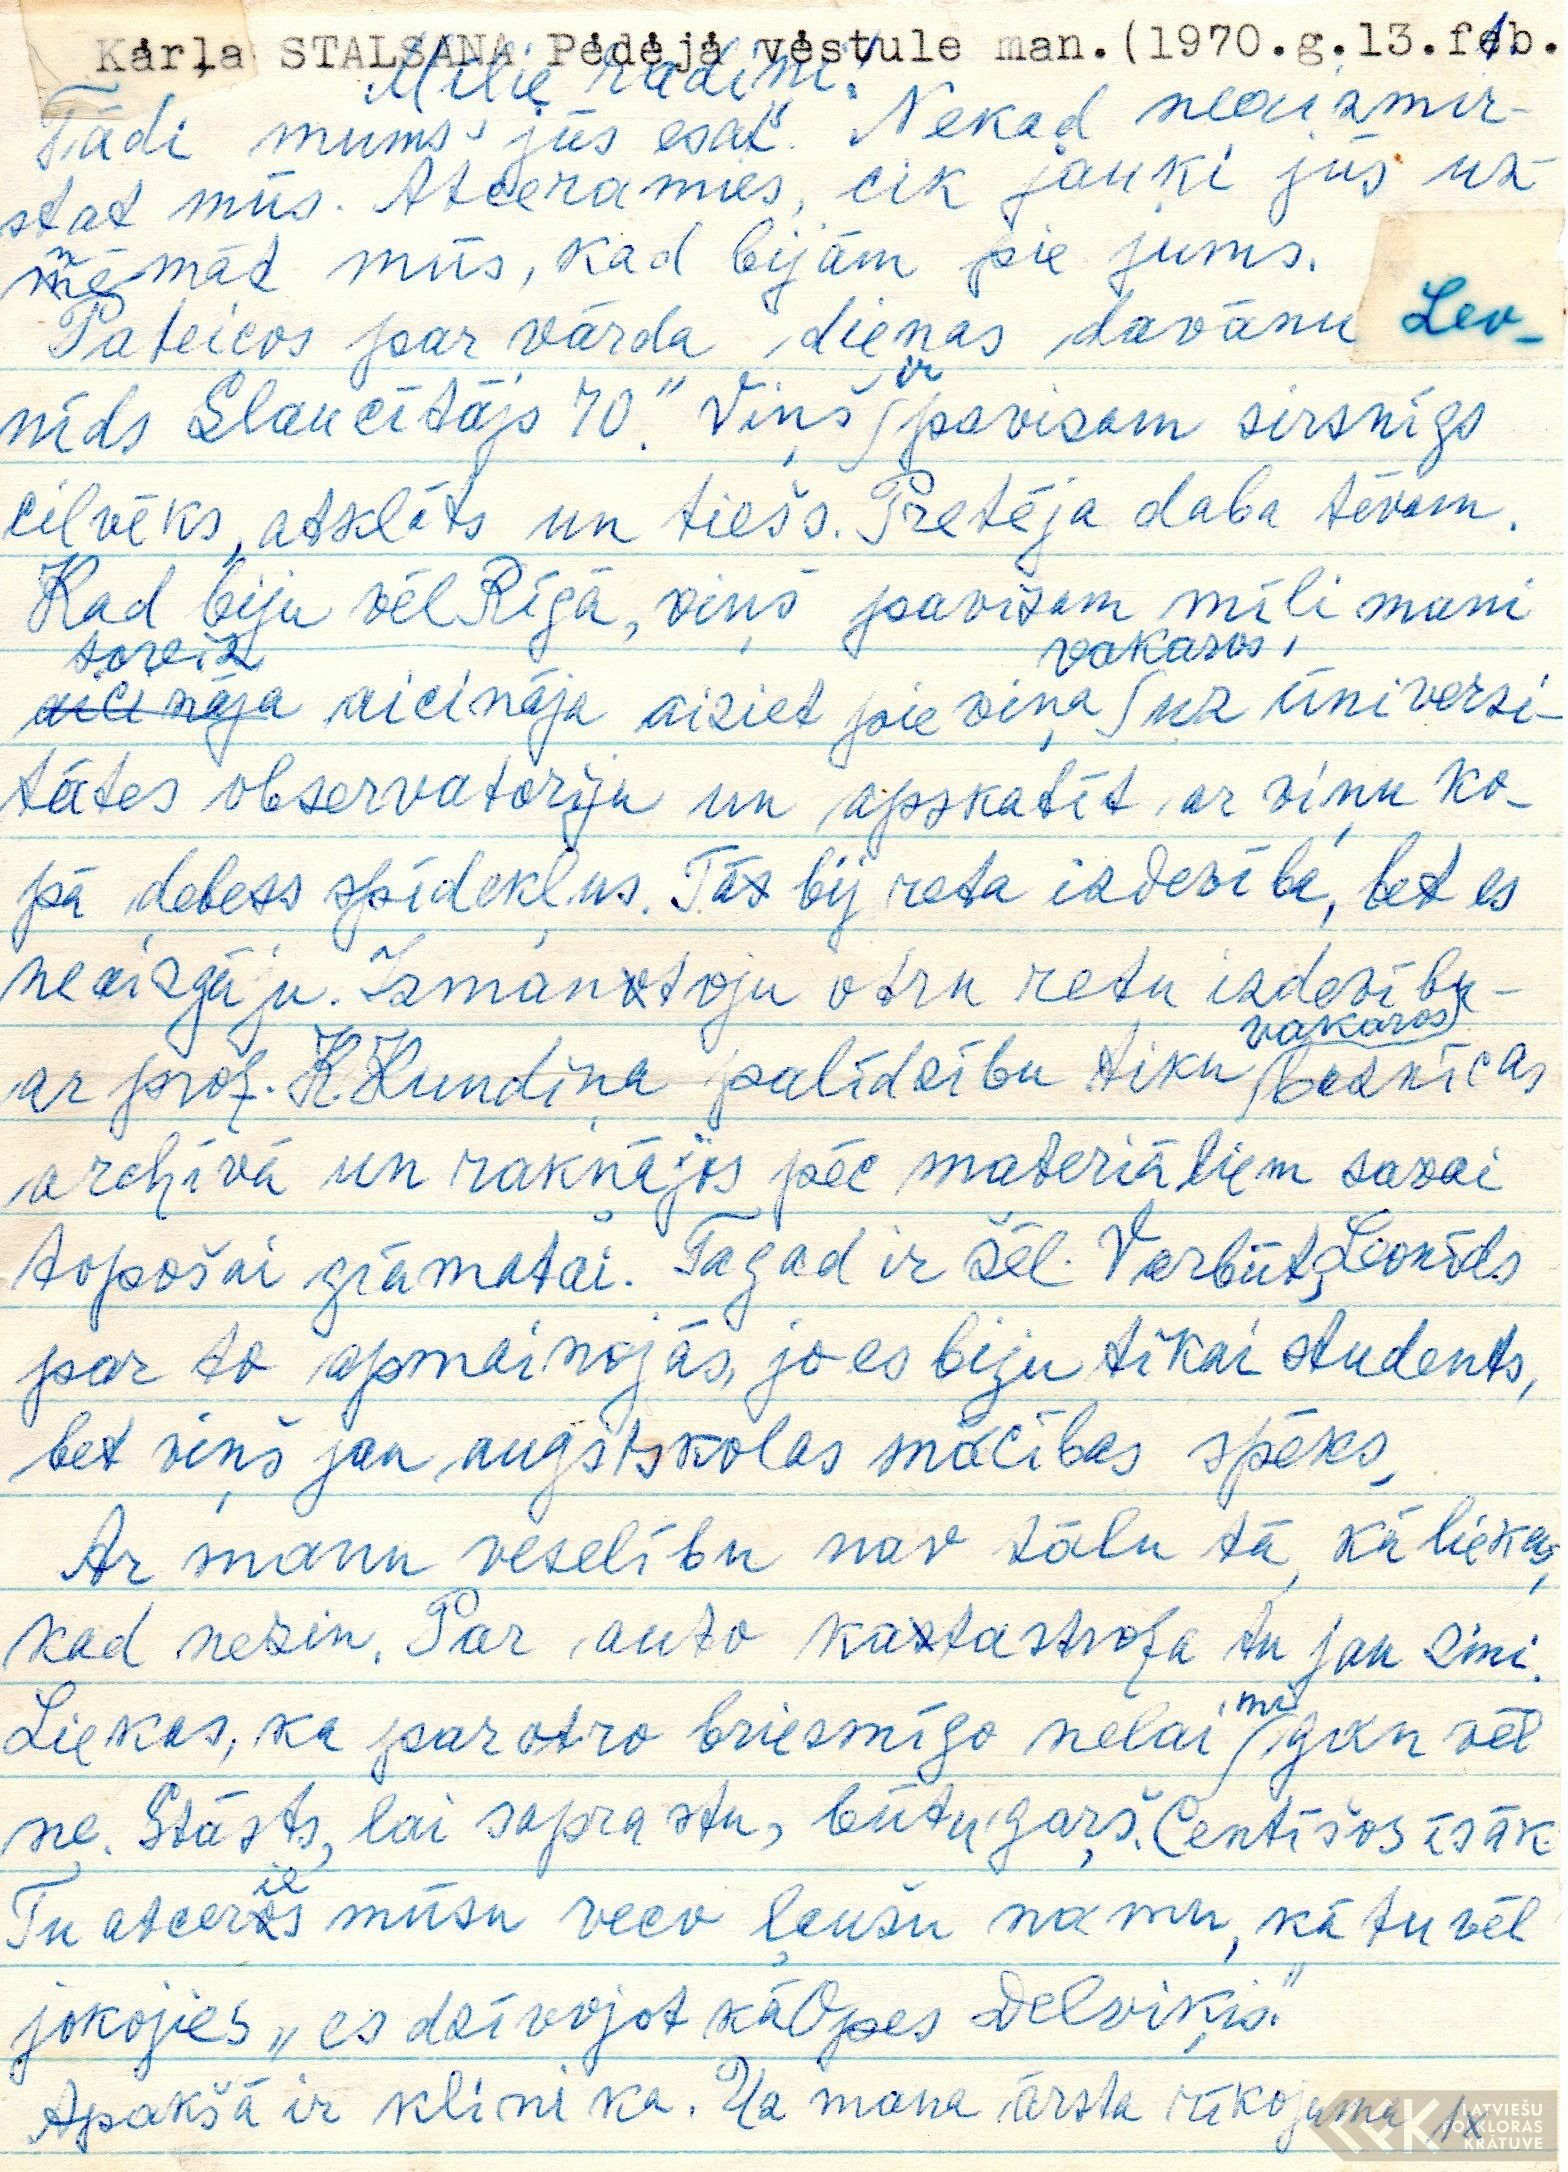 Kārļa STALSANA Pēdējā vēstule man.(1970.g.13.feb.
Mīlie radiņi!
Tādi mums jūs esat. Nekad neaizmir-
stat mūs. Atceramies, cik jauki jūs uz-
ņēmāt mūs, kad bijām pie jums.
Pateicos par vārda dienas dāvanu Leo-
nīds Slaucītājs 70." Viņš ir pavisam sirsnīgs
cilvēks, atklāts un tiešs. Pretēja daba tēvam.
Kad biju vēl Rīgā, viņš pavisam mīli mani
toreiz vakaros,
aicināja aicināja aiziet pie viņa uz Ūniversi-
tātes observatoriju un apskatīt ar viņu ko-
pā debess spīdekļus. Tā bij reta izdevība, bet es
neaizgāju. Izmantoju otru retu izdevību-
vakaros
ar prof. K.Kundiņa palīdzību tiku baznīcas
archīvā un raknājos pēc materiāliem savai
topošai grāmatai. Tagad ir žēl. Varbūt, Leonīds
par to apmainojās, jo es biju tikai students,
bet viņš jau augstskolas mācības spēks,
Ar manu veselību nav tālu tā, kā liekas,
kad nezin. Par auto katastrofa tu jau zini.
Liekas, ka par otro briesmīgo nelaimi gan vēl
ne. Stāsts, lai saprastu, būtu gaŗš. Centīšos īsāk.
Tu atceries mūsu veco ļaužu namu, kā tu vēl
jokojies „es dzīvojot kā Opes Delviķis."
Apakšā ir klinika. Uz mana ārsta rīkojuma 1x
LATVIEŠU
FOLKLORAS
KRĀTUVE